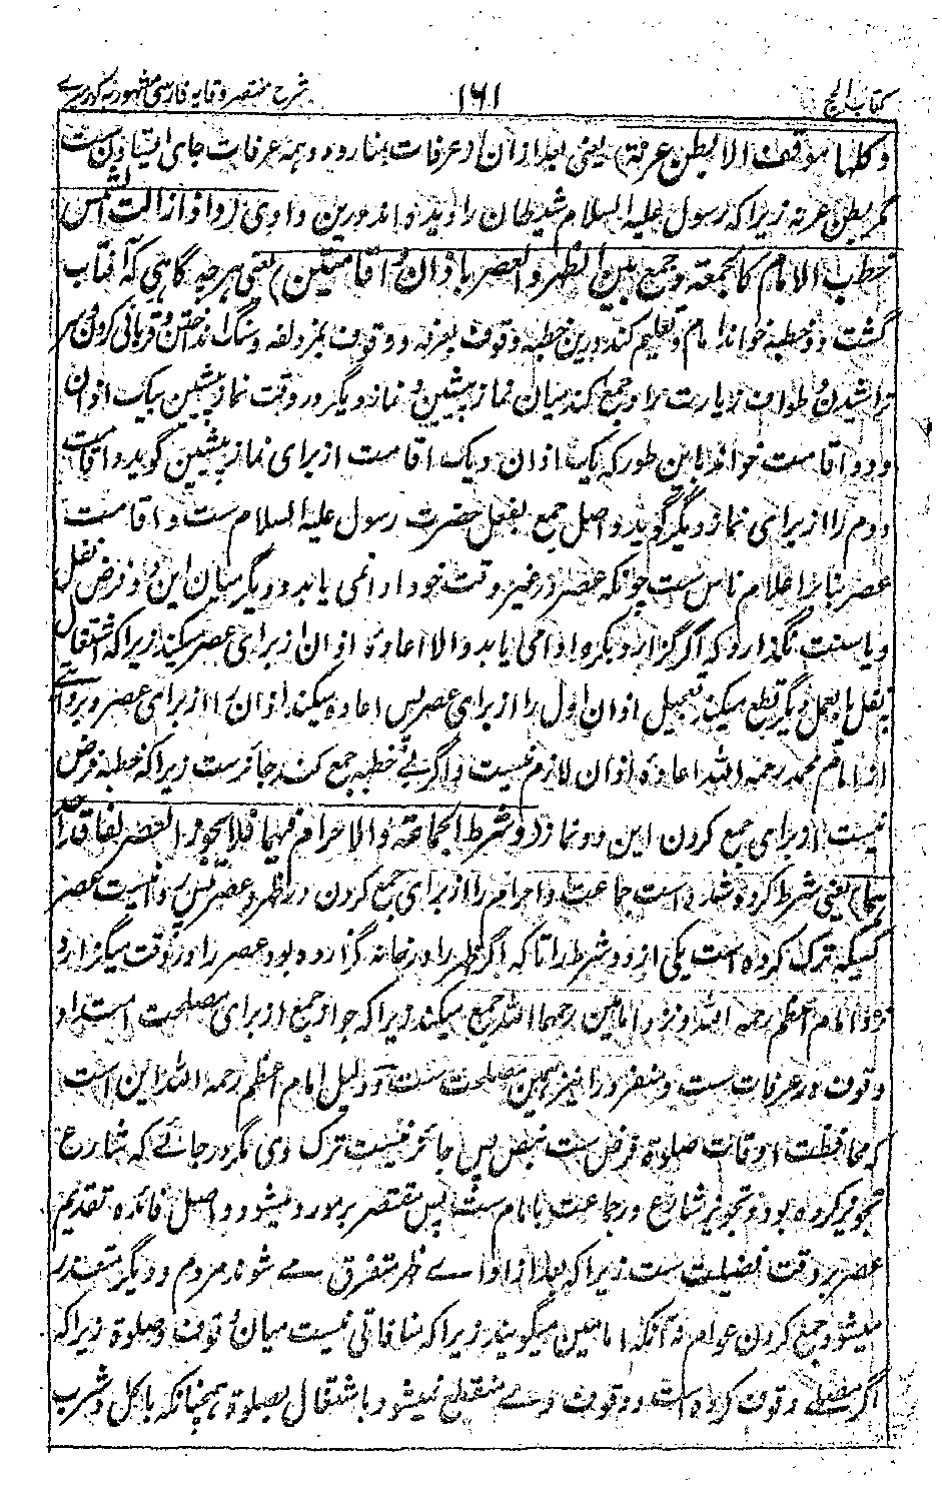 کتاب الحج ۱۶۱ شرح مختصر وقایه فارسی مشهور به
و کلها موقف الا بطن عرنة) یعنی بعد ازان در عرفات بنا رود و همه عرفات جای ایستادن ست
مگر بطن عرنه زیرا که رسول علیه السلام شیطان را دیده اند درین وادی (و اذا زالت الشمس
خطب الامام کالجمعة و جمع بین الظهر و العصر باذان و اقامتین) یعنی هرچه گاهی که آفتاب
گشت دو خطبه خواند امام و تعلیم کند درین خطبه وقوف بعرفه و وقوف بمزدلفه و سنگ انداختن و قربانی کردن و سر
تراشیدن و طواف زیارت را و جمع کند میان نماز پیشین و نماز دیگر در وقت نماز پیشین بیک اذان
و دو اقامت خواند باین طور که یک اذان و یک اقامت از برای نماز پیشین گوید و اقامت
دوم را از برای نماز دیگر گوید و اصل جمع بفعل حضرت رسول علیه السلام ست و اقامت
عصر بنا بر اعلام ناس ست چونکه عصر در غیر وقت خود ادا می یابد و دیگر میان این دو فرض نفل
و یا سنت نگذارد که اگر گزارد بکره ادا می یابد والا اعاده اذان از برای عصر میکند زیرا که اشتغال
بنفل یا بعمل دیگر قطع میکند تعجیل اذان اول را از برای عصر پس اعاده میکند اذان را از برای عصر و بروایتے
از امام محمد رحمه الله اعادۀ اذان لازم نیست و اگر بے خطبه جمع کند جائز ست زیرا که خطبه فرض
نیست از برای جمع کردن این دو نماز (و شرط الجماعة والاحرام فیهما فلا یجوز العصر لفاقد احد
هما) یعنی شرط کرده شده است جماعت و احرام را از برای جمع کردن در ظهر و عصر پس روا نیست عصر
کسیکه ترک کرده است یکی از دو شرط را تا که اگر ظهر را در خانه گزارده بود عصر را در وقت میگزارد
نزد امام اعظم رحمه الله و نزد امامین رحمهما الله جمع میکند زیرا که جواز جمع از برای مصلحت امتداد
وقوف در عرفات ست و منفرد را نیز همین مصلحت ست و دلیل امام اعظم رحمه الله این است
که محافظت اوقات صلوة فرض ست بنص پس جائز نیست ترک وی مگر در جائے که شارع
تجویز کرده بود و تجویز شارع در جماعت با امام ست پس مقتصر بر مورد میشود و اصل فائده تقدیم
عصر بر وقت فضیلت ست زیرا که بعد از ادائے ظهر متفرق مے شوند مردم و دیگر متعذر
میشود جمع کردن عوام و آنکه امامین میگویند زیرا که منافاتی نیست میان وقوف و صلوة زیرا که
اگر مصلے وقوف کرده است و وقوف وے منقطع نمیشود باشتغال بصلوة همچنانکه باکل و شرب